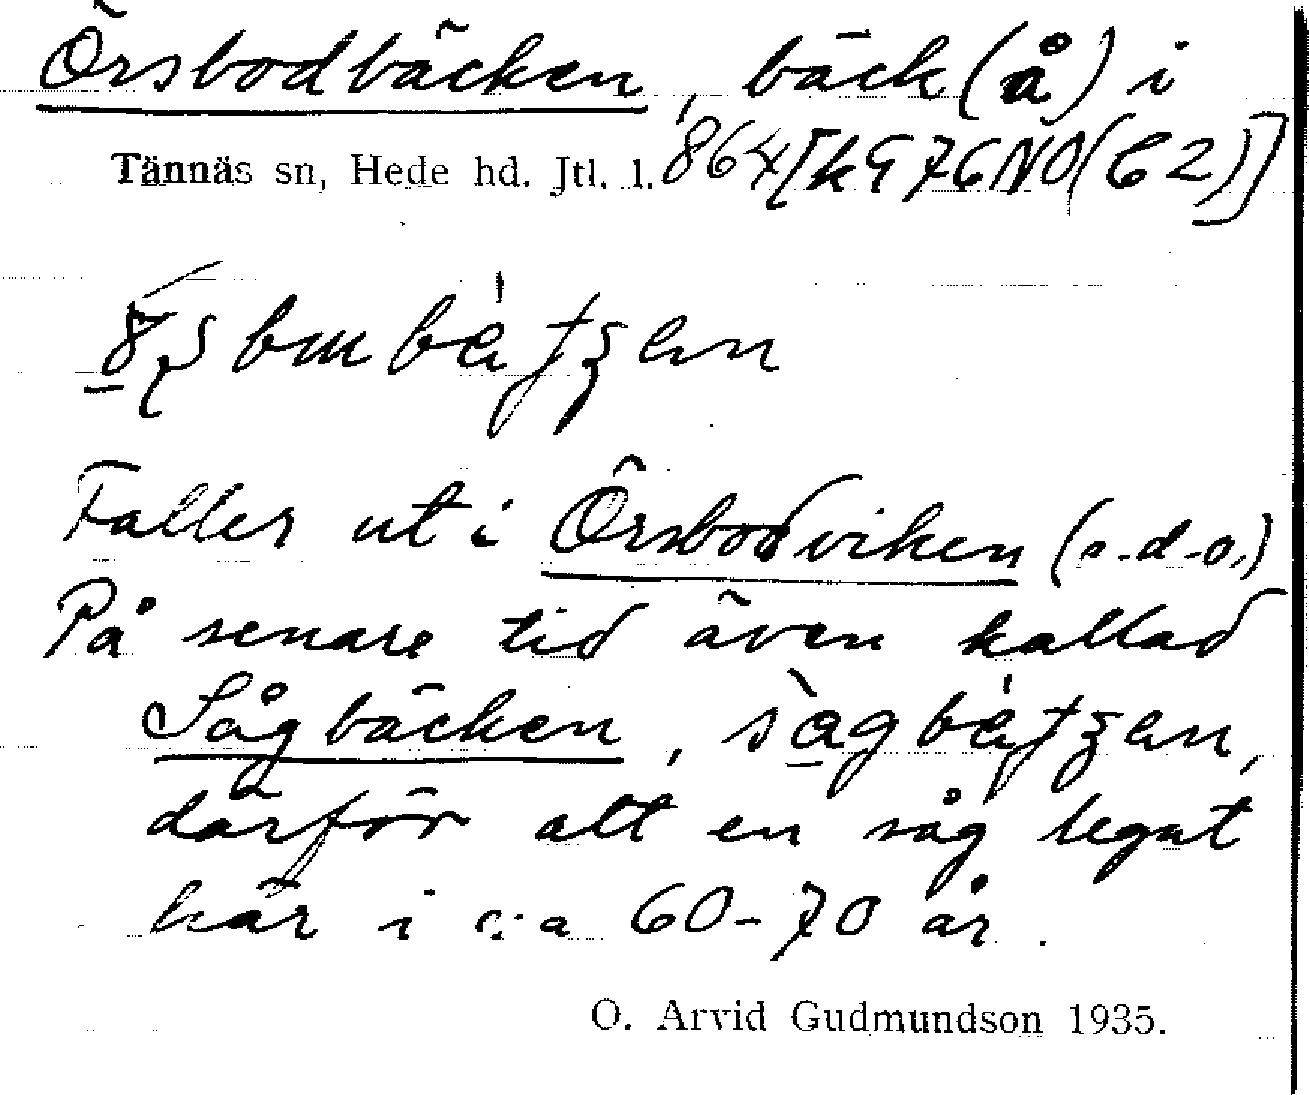 Örsbodbäcken, bäck (å) i
Tännäs sn, Hede hd. Jtl. l. 864 [k976NO(C2)]
Faller ut i Örsbodviken (s.d.o.)
På senare tid även kallad
Sågbäcken,
därför att en såg legat
här i c:a 60-70 år.
O. Arvid Gudmundson 1935.